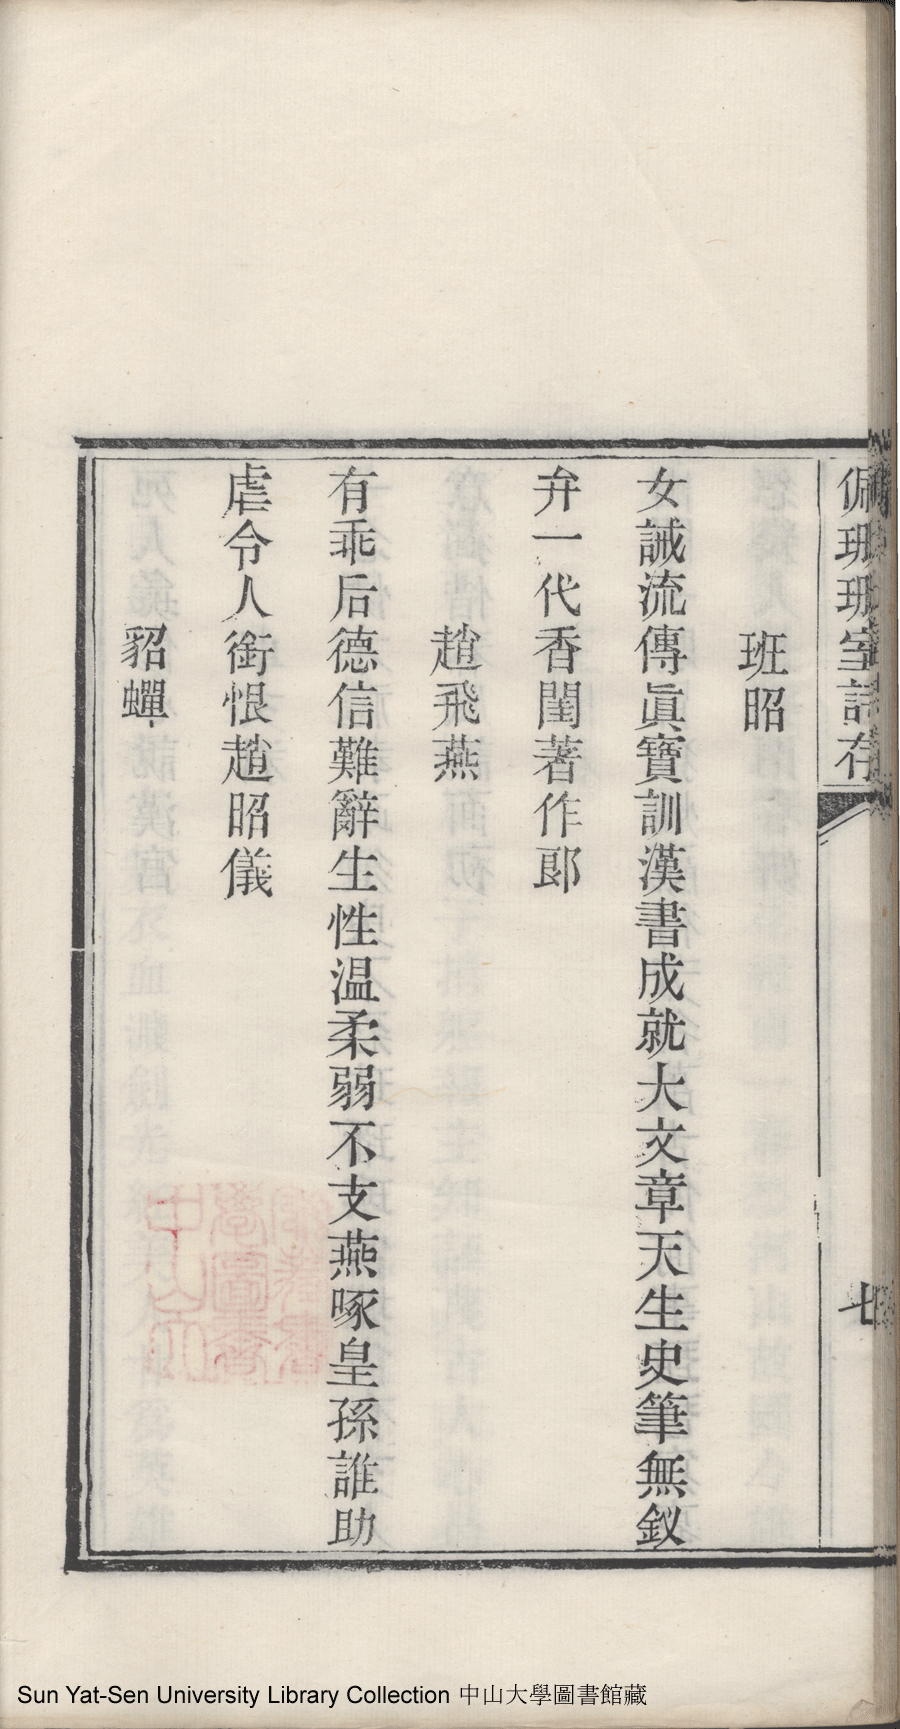 佩珊珊室詩存
七
班昭
女誡流傳眞寶訓漢書成就大文章天生史筆無釵
弁一代香閨著作郎
趙飛燕
有乖后德信難辭生性溫柔弱不支燕啄皇孫誰助
虐令人銜恨趙昭儀
貂蟬
Sun Yat-Sen University Library Collection 中山大學圖書館藏